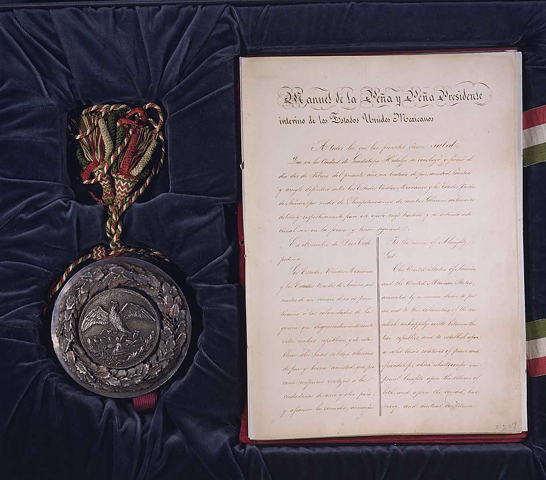 Manuel de la Peña y Peña Presidente
interino de los Estados Unidos Mexicanos
A todos los que las presentes vieren salud:
Que en la Ciudad de Guadalupe Hidalgo se concluyó y firmó el
dia dos de Febrero del presente año, un tratado de paz, amistad, limites
y arreglo definitivo entre los Estados Unidos Mexicanos y los Estados Unidos
de America por medio de Plenipotenciarios de ambos Gobiernos autorizados
debida y respectivamente para este efecto, cuyo tratado y su articulo adi-
cional son en la forma y tenor siguiente.
En el nombre de Dios Todo
poderoso
Los Estados Unidos Mexicanos
y los Estados Unidos de America, ani-
mados de un sincero deseo de poner
termino a las calamidades de la
guerra que desgraciadamente existe
entre ambas republicas, y de esta-
blecer sobre bases solidas relaciones
de paz y buena amistad, que pro-
curen reciprocas ventajas a los
ciudadanos de uno y otro pais,
y afiancen la concordia, armonia
In the name of Almighty
God.
The United States of America
and the United Mexican States
animated by a sincere desire to put
an end to the calamities of the war
which unhappily exists between the
two republics, and to establish upon
a solid basis relations of peace and
friendship, which shall confer reci-
procal benefits upon the citizens of
both, and assure the concord, har-
mony and mutual confidence